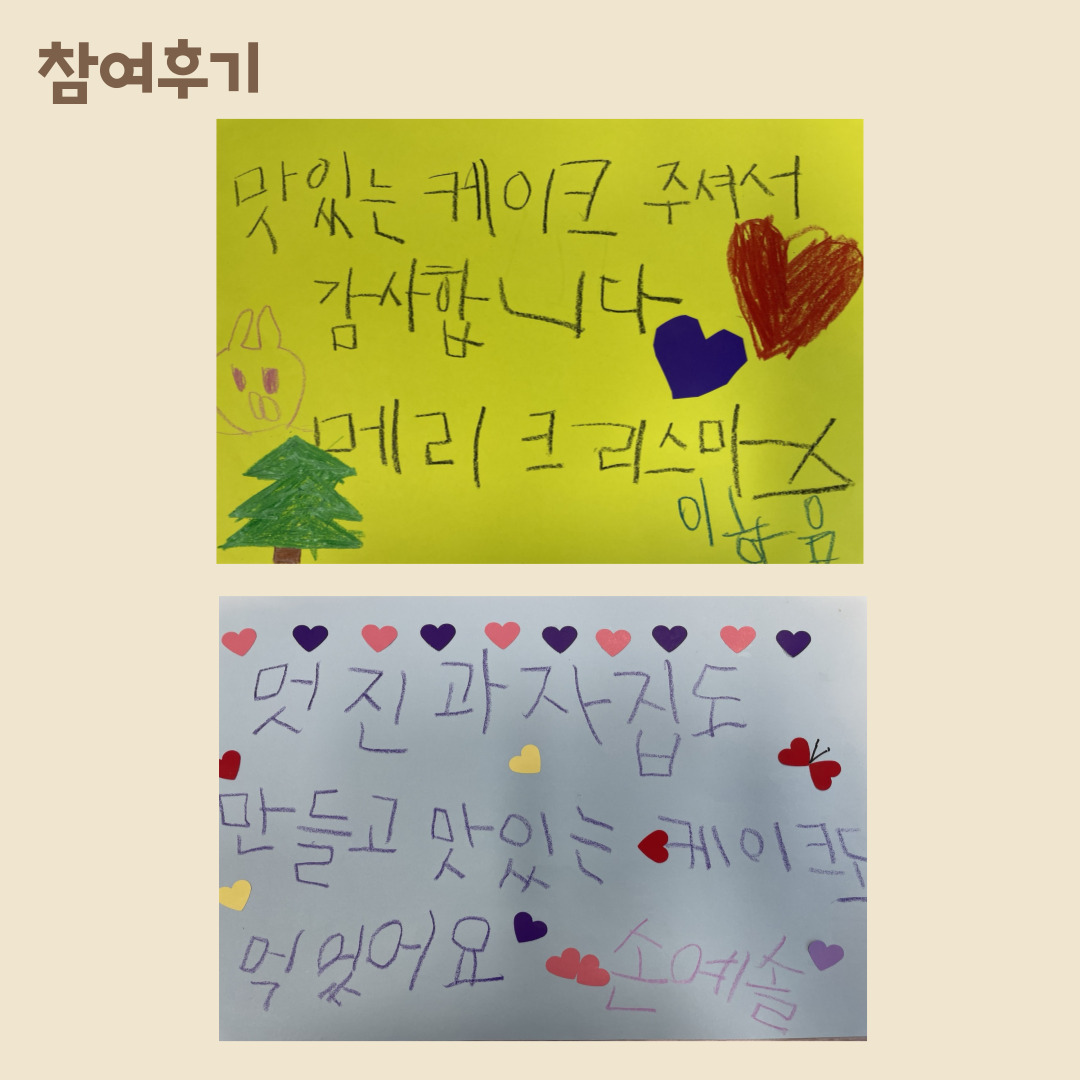 참여후기
맛있는 케이크 주셔서
감사합니다
메리 크리스마스
이
멋진 과자집도
만들고 맛있는 케이크도
먹었어요
손예솔